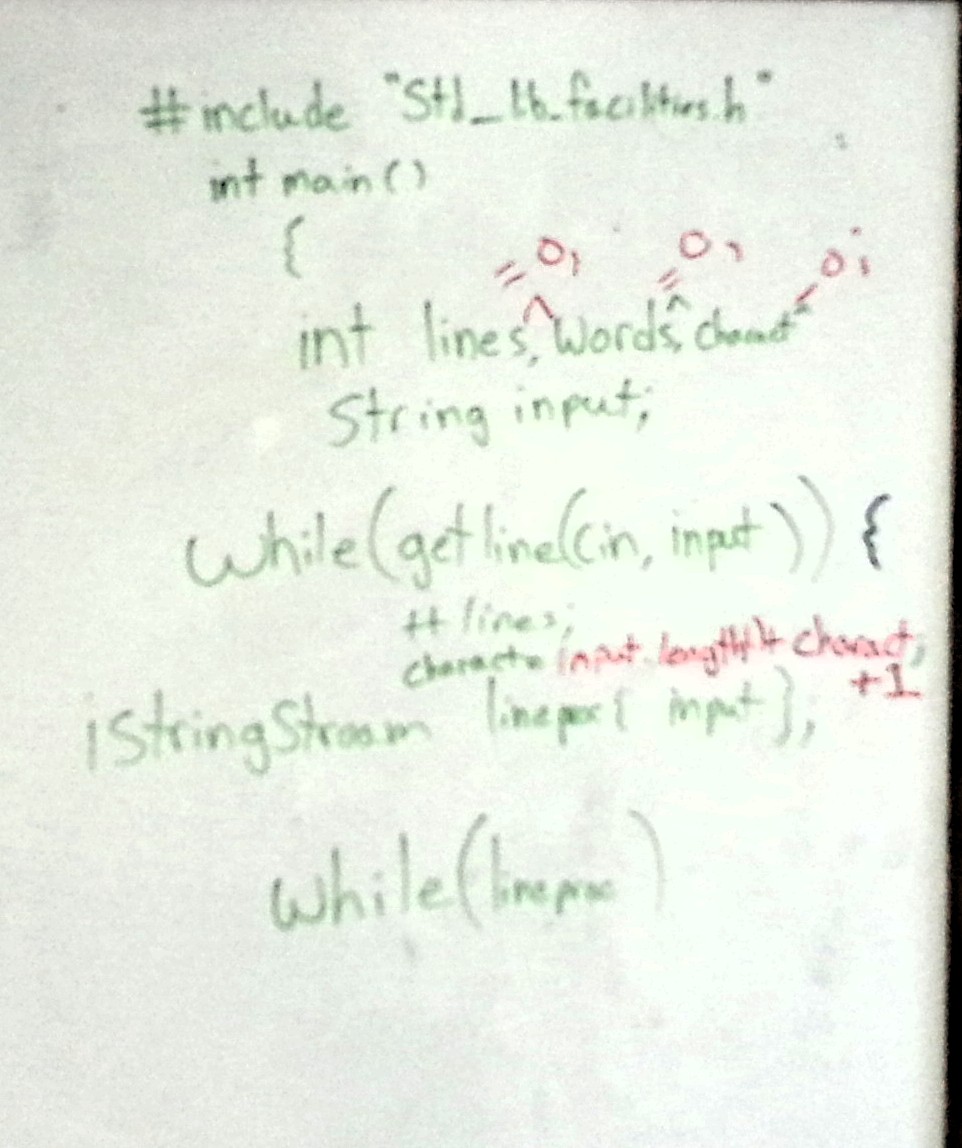 #include "Std_lib_facilities.h"
int main()
{
= 0, = 0, = 0;
int lines, words, charact
String input;
while(getline(cin, input)) {
++ lines;
charact = input.length()+ charact;
+1
iStringStream lineproc{ input };
while(lineproc)